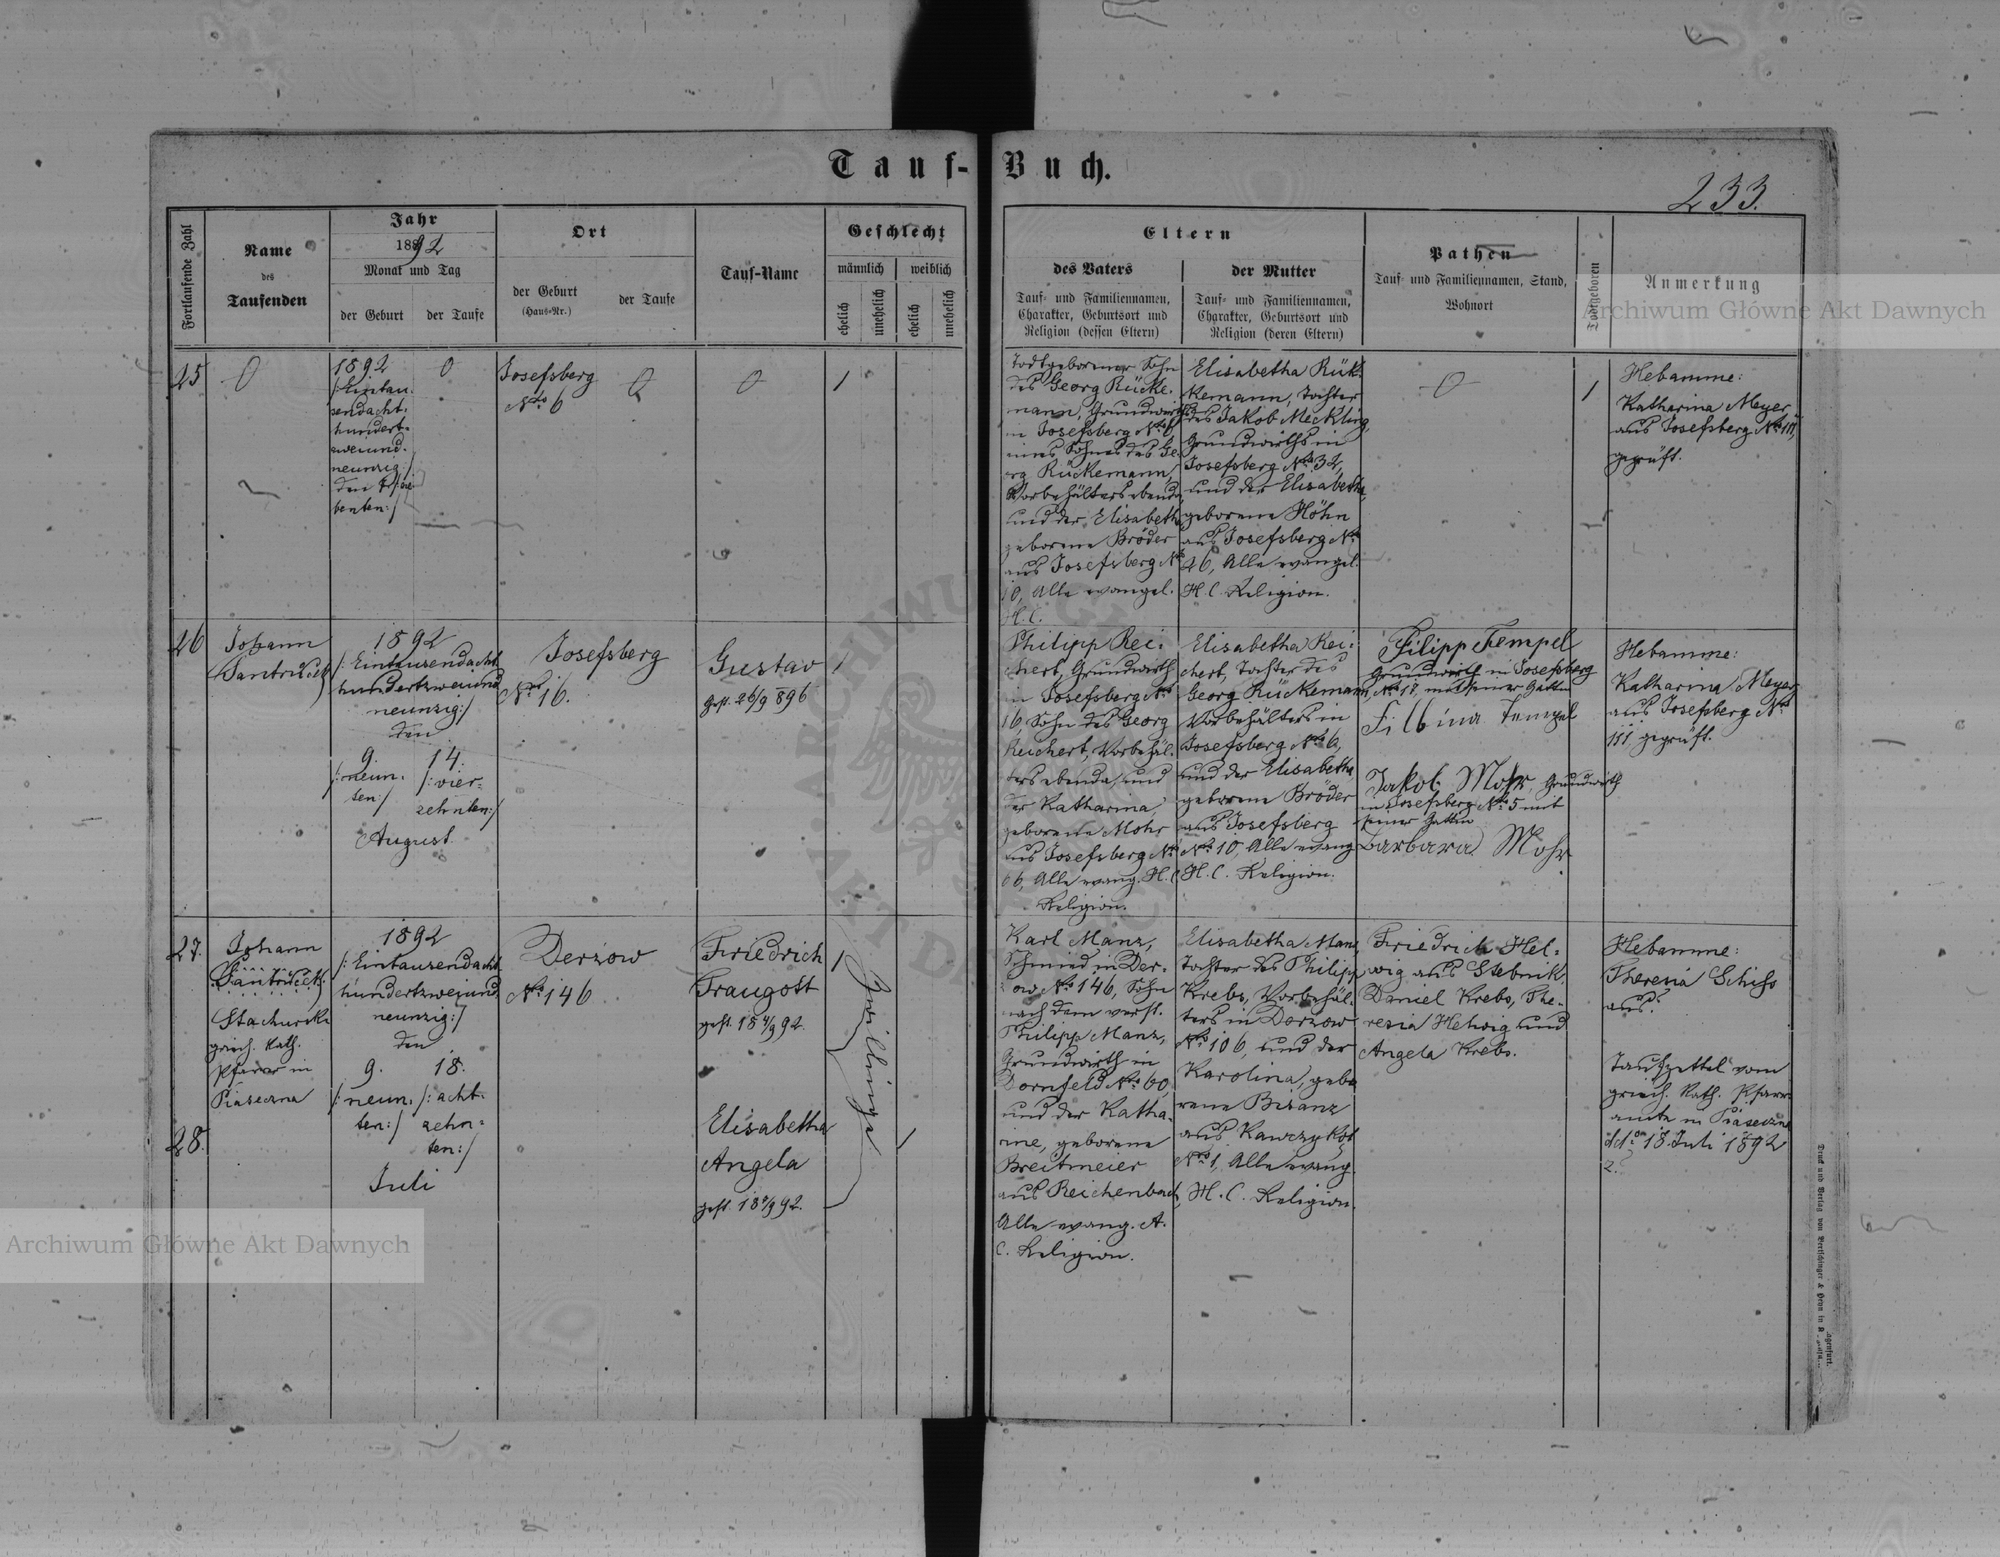 Tauf-Buch.
233.
Fortlaufende Zahl
Name
des
Taufenden
Jahr
1892
Monat und Tag
der Geburt
der Taufe
Ort
der Geburt
(Haus-Nr.)
der Taufe
Tauf-Name
Geschlecht
männlich
weiblich
ehelich
unehelich
ehelich
unehelich
Eltern
des Vaters
Tauf- und Familiennamen,
Charakter, Geburtsort und
Religion (dessen Eltern)
der Mutter
Tauf- und Familiennamen,
Charakter, Geburtsort und
Religion (deren Eltern)
Pathen
Tauf- und Familiennamen, Stand,
Wohnort
Todtgeboren
Anmerkung
25
0
1892
/:Eintau-
sendacht-
hundert-
zweiund-
neunzig:/
den
benten:/
0
Josefsberg
No 6
0
0
1
Todtgeborener Sohn
des Georg Rücke-
mann, Grundwirth
in Josefsberg No 6,
eines Sohnes des Ge-
org Rückemann,
Vorbehälters ebenda,
und der Elisabetha
geborene Bröder
aus Josefsberg No
10, Alle evangel.
H.C.
Elisabetha Rük-
kemann, Tochter
des Jakob Meckling,
Grundwirths in
Josefsberg No 32,
und der Elisabetha,
geborene Höhn
aus Josefsberg No
26, Alle evangel.
H.C. Religion.
0
1
Hebamme:
Katharina Meyer
aus Josefsberg No 111,
geprüft.
26
Johann
1892
/:Eintausendacht-
hundertzweiund-
neunzig:/
den
9.
/:neun-
ten:/
14.
/:vier-
zehnten:/
August.
Josefsberg
No 16.
Gustav
gest. 26/9 896
1
Philipp Rei-
chert, Grundwirth
in Josefsberg No
16, Sohn des Georg
Reichert, Vorbehäl-
ters ebenda, und
der Katharina
geborene Mohr
aus Josefsberg No
Alle evang. H.C.
Religion.
Elisabetha Rei-
chert, Tochter des
Georg Rückemann,
Vorbehälters in
Josefsberg No 6,
und der Elisabetha
geborene Bröder
aus Josefsberg
No 10, Alle evang.
H.C. Religion.
Filipp Tempel
Grundwirth in Josefsberg
No 17, mit seiner Gattin
Filbina Tempel
Jakob Mohr, Grundwirth
in Josefsberg No 5 mit
seiner Gattin
Barbara Mohr
Hebamme:
Katharina Meyer
aus Josefsberg No
111, geprüft.
27.
Johann
Stachurski
griech. kath.
Pfarrer in
Piaseczna
1892
/:Eintausendacht-
hundertzweiund-
neunzig:/
den
9.
/:neun-
ten:/
18.
/:acht-
zehn-
ten:/
Juli
Derzow
No 146
Friedrich
Traugott
1
Zwillinge
28.
Elisabetha
Angela
1
Karl Manz,
Schmied in Der-
zow No 146, Sohn
nach dem verst.
Philipp Manz,
Grundwirth in
Dornfeld No 60,
und der Katha-
rine, geborene
Breitmeier
aus Reichenbach,
Alle evang. A.
C. Religion.
Elisabetha Manz,
Tochter des Philipp
Krebs, Vorbehäl-
ters in Derzow
No 106, und der
Karolina, gebo-
rene Bisanz
aus Kawczykot
No 1, Alle evang.
H.C. Religion.
Friedrich Hel-
wig aus Stebnik,
Daniel Krebs, The-
resia Helwig und
Angela Krebs.
Hebamme:
Theresia Schiss
aus?
Taufzettel vom
griech. kath. Pfarr-
amte in Piaseczna
ddo 18. Juli 1892
Z.?
Archiwum Główne Akt Dawnych
Archiwum Główne Akt Dawnych